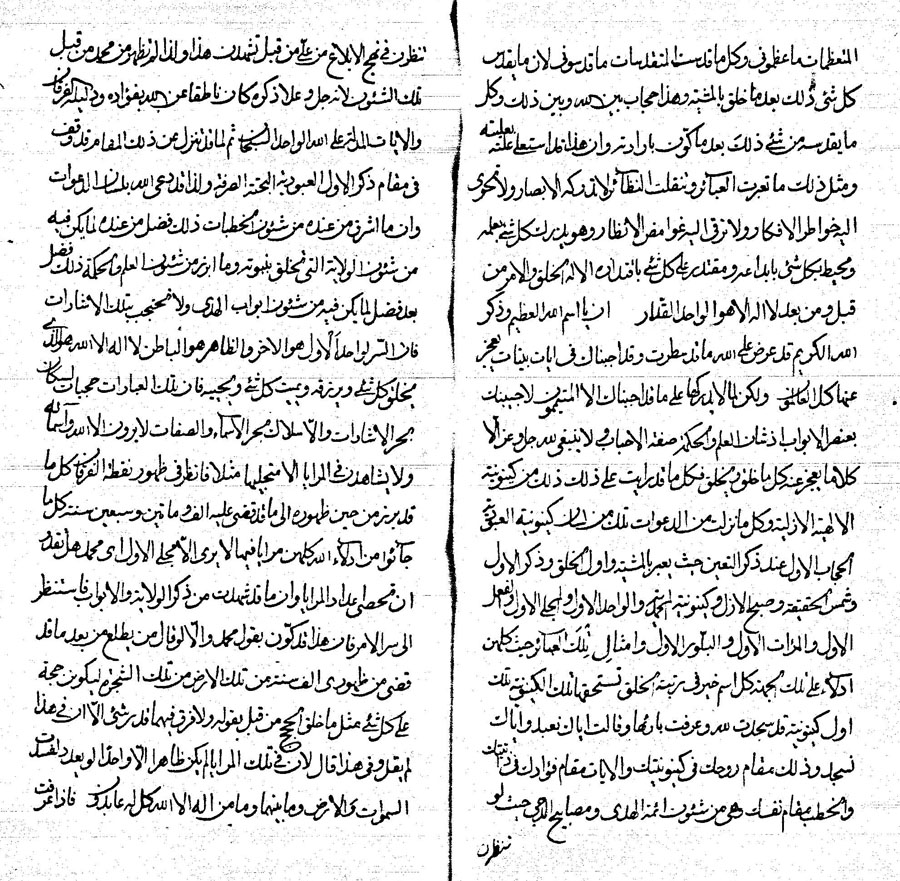 المتعظمات ما عظموني وكل ما قدست المتقدسات ما قدسوني لان ما يقدس
كل شئ ذلك بعد ما خلق بالمشية وهذا حجاب بين الله وبين ذلك وكل
ما يقدسه من شئ ذلك بعد ما كون بارادته وان هذا قد استعلى علته بعليته
ومثل ذلك ما تغيرت العبائر وتنقلت النظائر لا تدركه الابصار ولا تحوى
اليه خواطر الافكار ولا ترقى اليه غوامض الانظار وهو يدرك كل شئ بعلمه
ومحيط بكل شئ بابداعه ومقتدر على كل شئ باقتداره الا له الخلق والامر من
قبل ومن بعد لا اله الا هو الواحد القدار ان يا اسم الله العظيم وذكر
الله الكريم قد عرض على الله ما قد سطرت وقد اجبناك في ايات بينات يعجز
عنها كل العالمون ولكن لما لا يدركها على ما قد اجبناك الا المتقون لاجيبنك
بعض الابواب اذ شان العلم والحكمة صفة الاحباب و لا ينبغي لله جل وعز الا
كلاما يعجز عنه كل ما خلق ويخلق فكل ما قد رايت على ذلك ذلك من كينونية
الالهية الازلية وكل ما نزلت من الدعوات تلك من لسان كينونية العبودية
الحجاب الاول عند ذكر التعين حيث يعبر بالمشية واول الخلق وذكر الاول
وشمس الحقيقة وصبح الازل وكينونية المحمدية والواحد الاول والمجلي الاول والفعل
الاول والمرات الاول والبلور الاول وامثال تلك العبائر حيث كلهن
ادلاء على تلك الجهة كل اسم خير في رتبة الخلق تستحقها تلك الكينونية تلك
اول كينونية قد سجدت لله وعرفت بارئها وقالت اياك نعبد واياك
نسجد وذلك مقام روحك في كينونيتك والايات مقام فؤادك في
والخطب مقام نفسك وهي من شئون ائمة الهدى ومصابيح الدجى حيث لو
تنظرن
تنظرون في نهج الابلاغ من على من قبل تشهدن هذا ولذا لم يظهر من محمد من قبل
تلك الشئون لانه جل وعلا ذكره كان ناطقا عن الله بفؤاده وذلك الفرقان
والايات المدلة على الله الواحد السبحان ثم لما قد تنزل عن ذلك المقام قد وقف
في مقام ذكر الاول العبودية البحتة الصرفة ولذا قد دعى الله بلسان الدعوات
وان ما اشرق من عنده من شئون الخطبات ذلك فضل من عنده لما يكن فيه
من شئون الولاية التي تخلق بنبوته وما ابرز من شئون العلم والحكمة ذلك فضل
بعد فضل لما يكن فيه من شئون ابواب الهدى ولا تحتجب بتلك الاشارات
فان السر لواحدا لاول هو الاخر والظاهر هو الباطن لا اله الا الله هو الذي
يخلق كل شئ ويرزقه ويميت كل شئ ويحييه فان تلك العبارات حجبات لسكان
بحر الاشارات والاسلاك لبحر الاسماء والصفات لا يرون الا الله واسمائه
ولا يشاهدن في المرايا الا متجليها مثلا فانظر في ظهور نقطة الفرقان كل ما
قد برز من حين ظهوره الى ما قد قضى عليه الف وماتين وسبعين سنة كل ما
جائوا من ادلاء الله كلهن مرايا فيها لا يرى الا مجلي الاول اى محمد هل تقدر
ان تحصى اعداد المرايا وان ما قد شهدت من ذكر الولاية والابواب فاستنظر
الى سر الامر فان هذا قد تكون بقول محمد والا لو قال من يطلع من بعد ما قد
قضى من ظهوري الف سنة من تلك الارض من تلك الشجرة ليكون حجة
على كل شئ مثل ما خلق الحجج من قبل بقوله ولا فرق فيهما قدر شئ الا ان في هذا
لم يقل وفي هذا قال لان في تلك المرايا لم يكن ظاهرا الا واحدا لو يعدد
السموات والارض وما بينهما وما من اله الا الله كل له عابدون فاذا عرفت